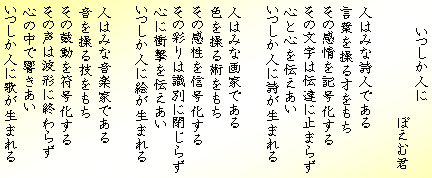 いつしか人に
ぽえむ君
人はみな詩人である
言葉を操る才をもち
その感情を記号化する
その文字は伝達に止まらず
心と心を伝えあい
いつしか人に詩が生まれる
人はみな画家である
色を操る術をもち
その感性を信号化する
その彩りは識別に閉じらず
心に衝撃を伝えあい
いつしか人に絵が生まれる
人はみな音楽家である
音を操る技をもち
その鼓動を符号化する
その声は波形に終わらず
心の中で響きあい
いつしか人に歌が生まれる